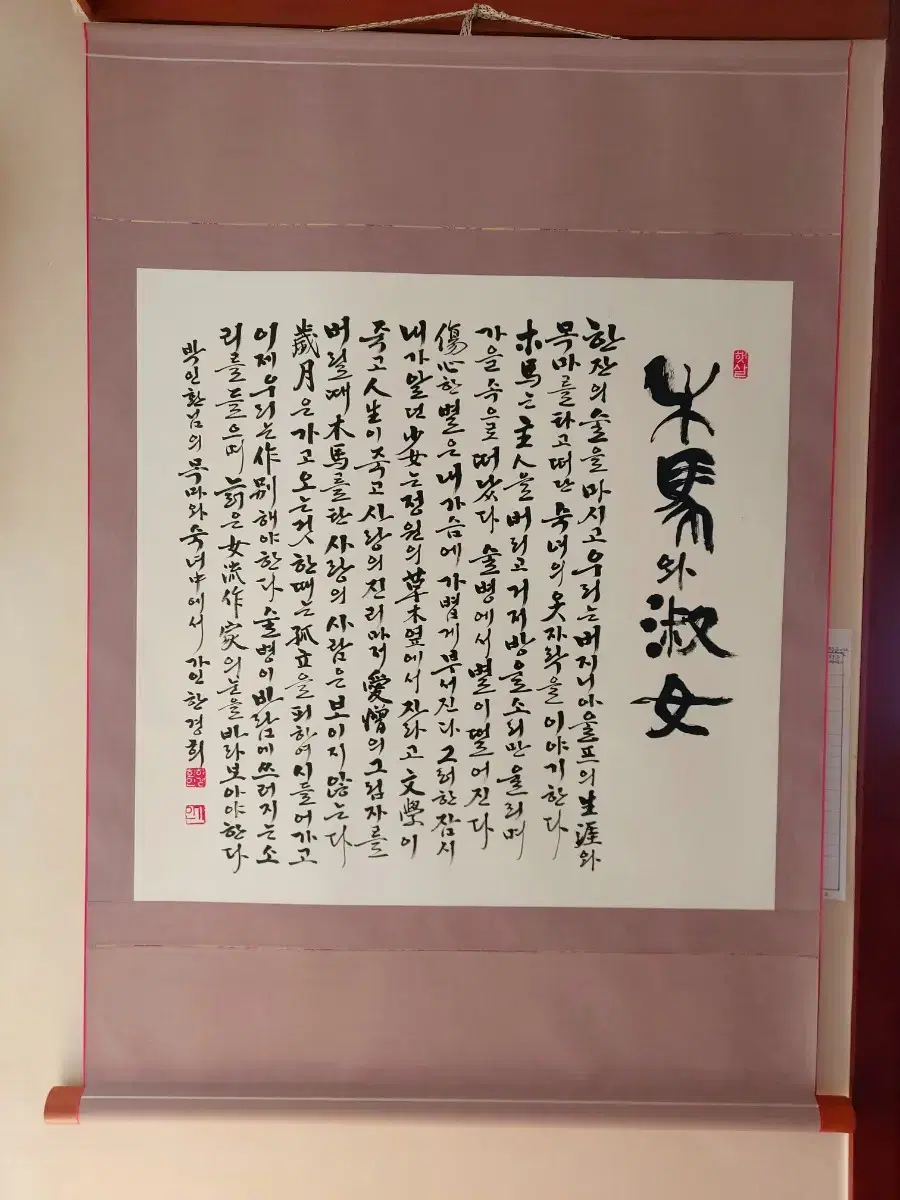 햇살
木馬와 淑女
한잔의 술을 마시고 우리는 버지니아 울프의 生涯와
목마를 타고 떠난 숙녀의 옷자락을 이야기한다
木馬는 主人을 버리고 거저 방울소리만 울리며
가을 속으로 떠났다 술병에서 별이 떨어진다
傷心한 별은 내 가슴에 가볍게 부서진다 그러한 잠시
내가 알던 少女는 정원의 草木 옆에서 자라고 文學이
죽고 人生이 죽고 사랑의 진리마저 愛憎의 그림자를
버릴때 木馬를 탄 사랑의 사람은 보이지 않는다
歲月은 가고 오는것 한때는 孤立을 피하여 시들어가고
이제 우리는 作別해야한다 술병이 바람에 쓰러지는 소
리를 들으며 늙은 女流作家의 눈을 바라보아야 한다
박인환님의 목마와 숙녀 中에서 가인 한경희